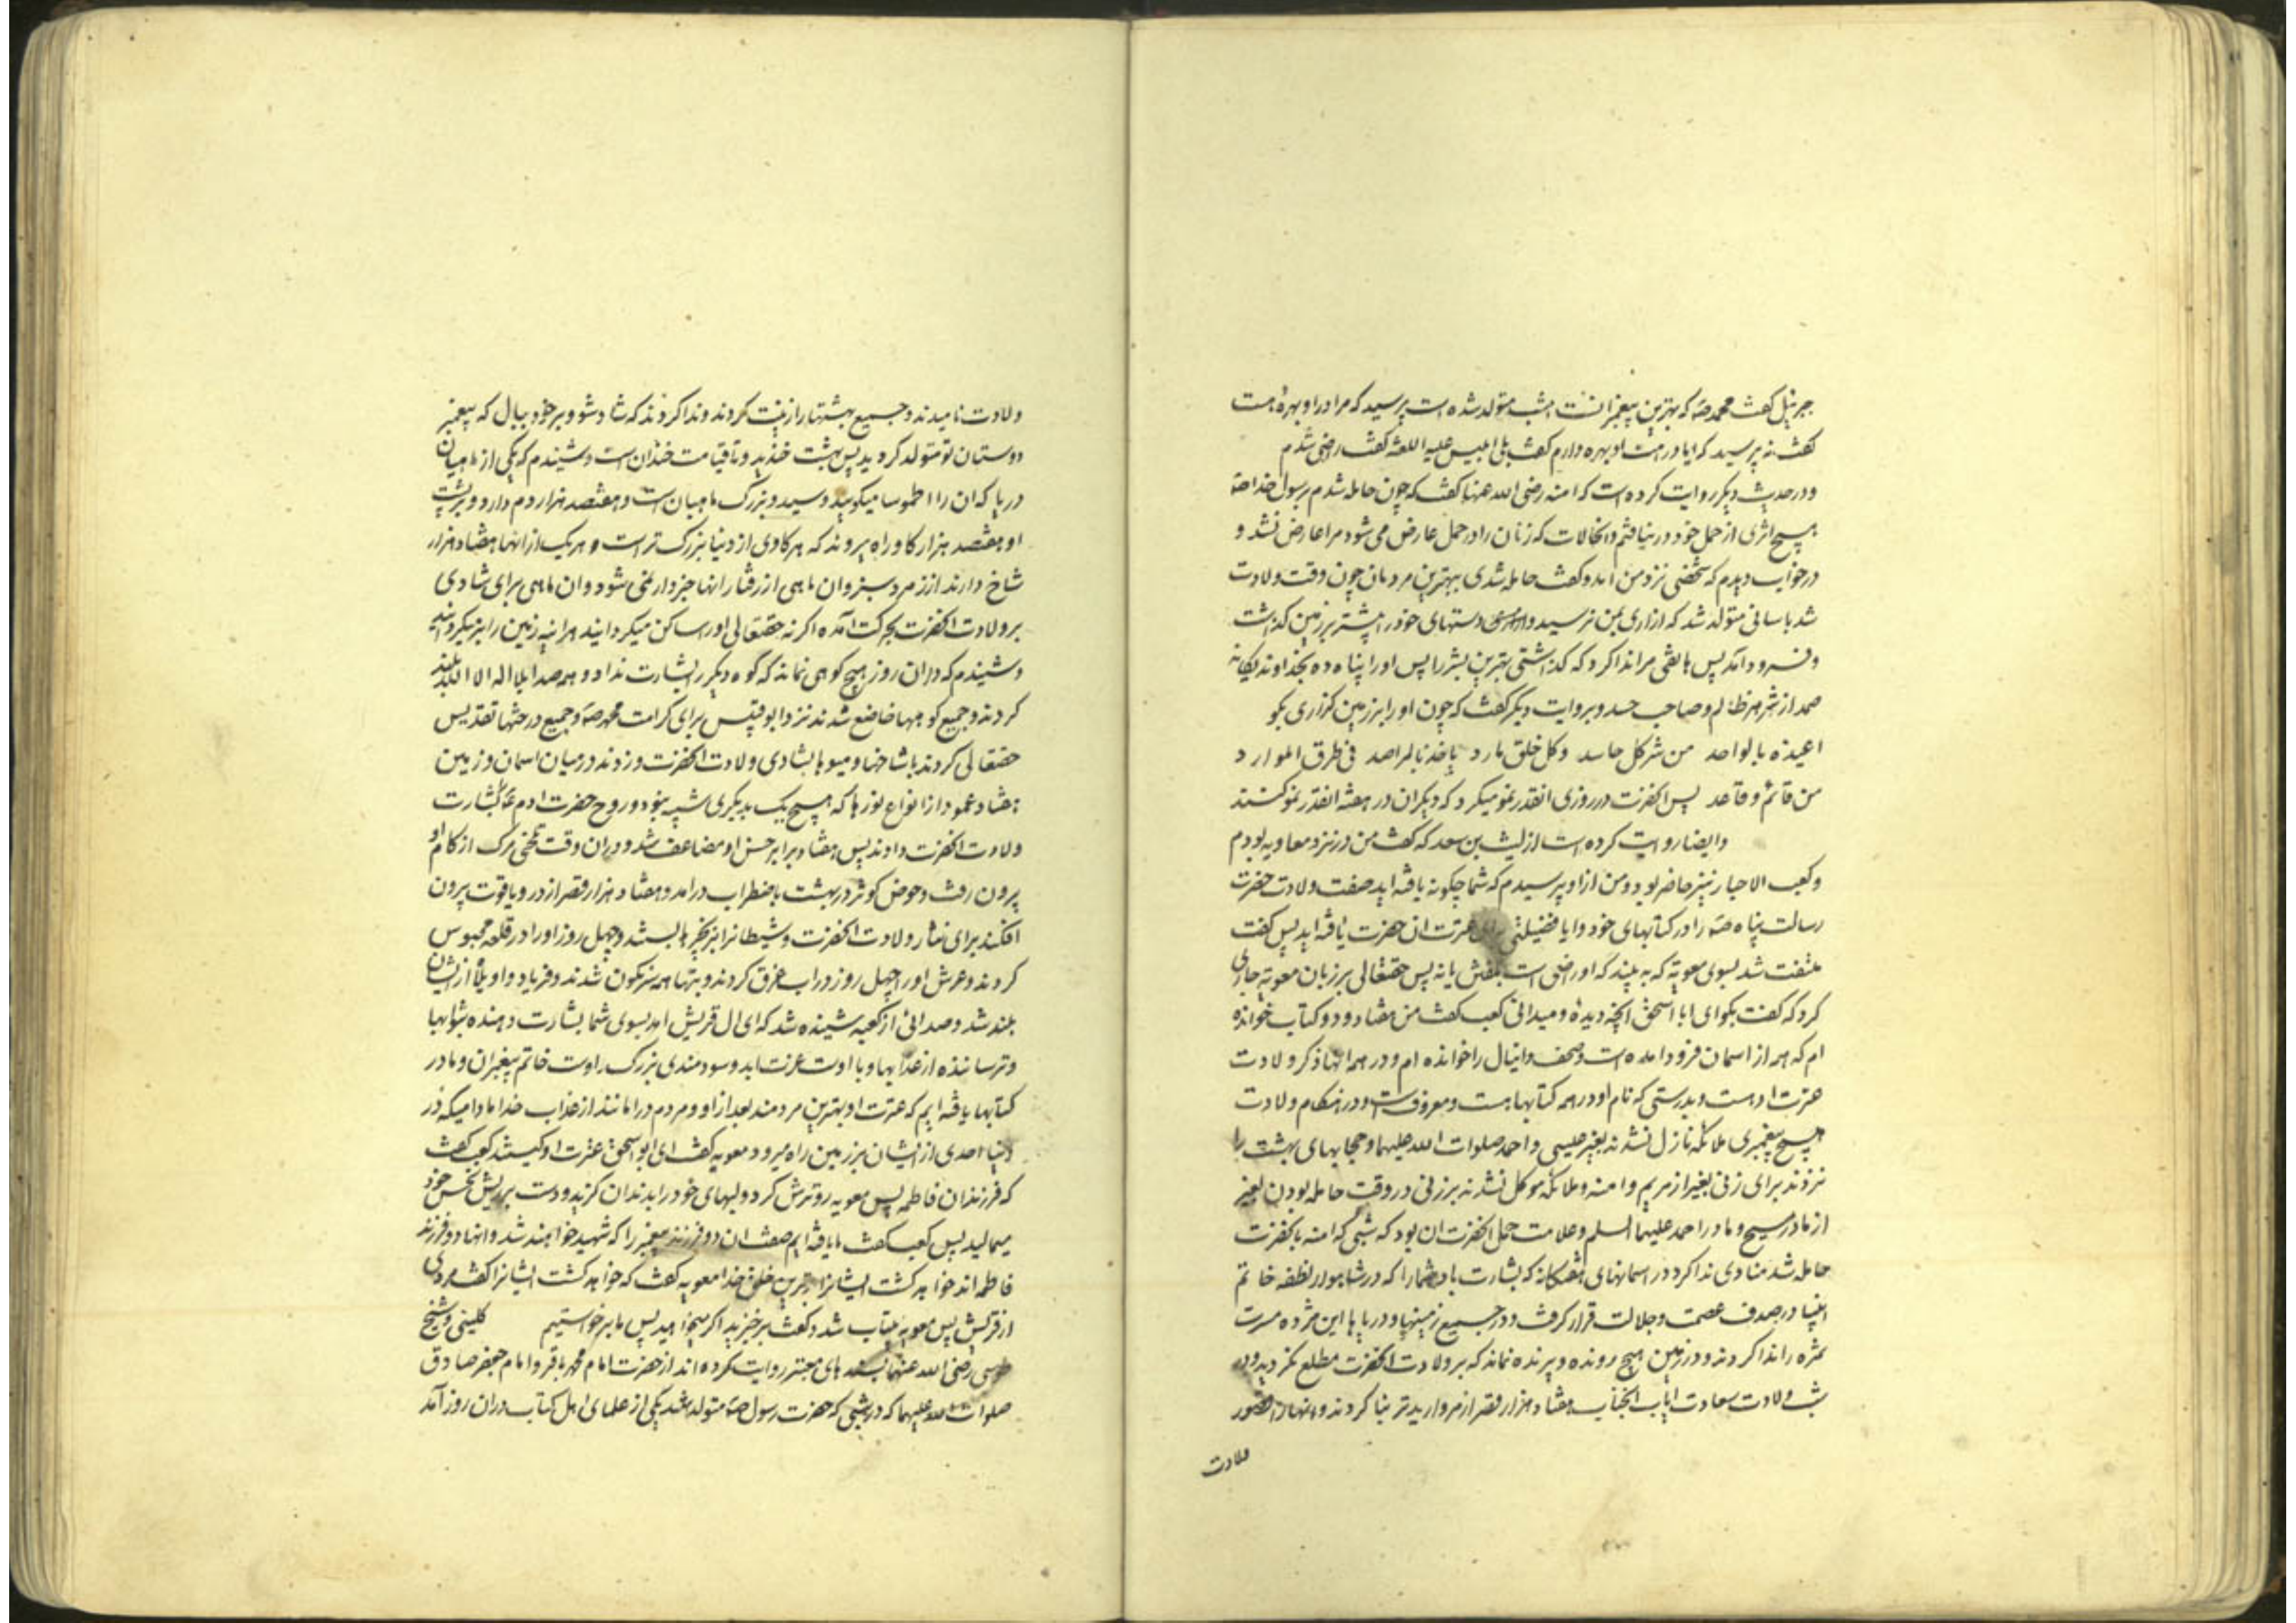 جبرئیل کفت محمد صه که بهترین پیغمبرانست امشب متولد شده است پرسید که مرا در او بهره هست
کفت نه پرسید که ایا در امت او بهره دارم کفت بلی ابلیس علیه اللعنه کفت راضی شدم
و در حدیث دیکر روایت کرده است که امنه رضی الله عنها کفت که چون حامله شدم برسول خدا صه
هیچ اثری از حمل خود در نیافتم و انحالات که زنان را در حمل عارض می شود مرا عارض نشد و
در خواب دیدم که شخصی نزد من امد و کفت حامله شدی ببهترین مردمان چون وقت ولادت
شد باسانی متولد شد که ازاری بمن نرسید و دستهای خود را پیشتر بر زمین کذاشت
و فرود آمد پس هاتفی مرا ندا کرد که کذاشتی بهترین بشر را پس او را پناه ده بخداوند یکانه
صمد از شر هر ظالم و صاحب حسد و بروایت دیکر کفت که چون او را بر زمین کزاری بکو
اعیذه بالواحد من شر کل حاسد وکل خلق مارد یاخذ بالمراصد فی طرق الموارد
من قائم و قاعد پس انحضرت در روزی انقدر نمو میکرد که دیکران در هفته انقدر نمو کنند
وایضا روایت کرده است از لیث بن سعد که کفت من در نزد معاویه بودم
وکعب الاحبار نیز حاضر بود و من از او پرسیدم که شما چکونه یافته اید صفت ولادت حضرت
رسالت پناه صه را در کتابهای خود و ایا فضیلتی برای عترت ان حضرت یافته اید پس کفت
ملتفت شد بسوی معویه که به بیند که او راضی است بکفتش یا نه پس حقتعالی بر زبان معویه جاری
کرد که کفت بکو ای ابا اسحق انچه دیدهٔ و میدانی کعب کفت من هفتاد و دو کتاب خوانده
ام که همه از اسمان فرود امده است و صحف دانیال را خوانده ام و در همه انها ذکر ولادت
حضرت او هست و بدرستی که نام او در همه کتابها هست و معروف است و در هنکام ولادت
هیچ پیغمبری ملائکه نازل نشدند بغیر عیسی و احمد صلوات الله علیهما و حجابهای بهشت را
نزدند برای زنی بغیر از مریم و امنه و ملائکه موکل نشدند بر زنی در وقت حامله بودن بغیر
از مادر مسیح و مادر احمد علیهما السلم و علامت حمل انحضرت ان بود که شبی که امنه بانحضرت
حامله شد منادی ندا کرد در اسمانهای هفتکانه که بشارت باد شمارا که در شاهوار نطفه خاتم
انبیا در صدف عصمت و جلالت قرار کرفت و در جمیع زمینها و دریاها این مژده مسرت
ثمره را ندا کردند و در زمین هیچ رونده و پرنده نماند که بر ولادت انحضرت مطلع نکردید و در
شب ولادت سعادت ایاب انجناب هفتاد هزار قصر از مروارید تر بنا کردند و انها را قصور
ولادت
ولادت نامیدند و جمیع بهشتها را زینت کردند و ندا کردند که شاد شو و بر خود ببال که پیغمبر
دوستان تو متولد کردید پس بهشت خندید و تا قیامت خندان است و شنیدم که یکی از ماهیان
دریا که ان را طموسا میکویند و سید و بزرک ماهیان است و هفتصد هزار دم دارد و بر پشت
او هفتصد هزار کاو راه میروند که هر کاوی از دنیا بزرک تر است و هر یک از انها هفتاد هزار
شاخ دارند از زمرد سبز و ان ماهی از رفتار انها خبردار نمی شود و ان ماهی برای شادی
بر ولادت انحضرت بحرکت آمده اکر نه حقتعالی او را ساکن میکردانید هر اینه زمین را بر میکردانید
و شنیدم که در ان روز هیچ کوهی نماند که کوه دیکر را بشارت نداد و همه صدا بلا اله الا الله بلند
کردند و جمیع کوهها خاضع شدند نزد ابو قبیس برای کرامت محمد صه و جمیع درختها تقدیس
حقتعالی کردند با شاخها و میوها بشادی ولادت انحضرت و زدند در میان اسمان و زمین
هفتاد عمود از انواع نورها که هیچ یک بدیکری شبیه نبود و روح حضرت ادم ع را بشارت
ولادت انحضرت دادند پس هفتاد برابر حسن او مضاعف شد و در ان وقت تلخی مرک از کام او
بیرون رفت و حوض کوثر در بهشت باضطراب درامد و هفتاد هزار قصر از در و یاقوت بیرون
افکند برای نثار ولادت انحضرت و شیطانرا بزنجیرها بستند و چهل روز او را در قلعه محبوس
کردند و عرش او را چهل روز در اب غرق کردند و بتها همه سرنکون شدند و فریاد و اویلاه از ایشان
بلند شد و صدائی از کعبه شنیده شد که ای ال قریش امد بسوی شما بشارت دهنده بثوابها
و ترساننده از عذابها و با اوست عزت ابد و سودمندی بزرک و اوست خاتم پیغمبران و ما در
کتابها یافته ایم که عترت او بهترین مردمند بعد از او و مردم در امانند از عذاب خدا مادامیکه در
دنیا احدی از ایشان بر زمین راه میرود معویه کفت ای ابو اسحق عترت او کیستند کعب کفت
که فرزندان فاطمه پس معویه رو ترش کرد و لبهای خود را بدندان کزید و دست بر ریش نحس خود
میمالید پس کعب کفت ما یافته ایم صفت ان دو فرزند پیغمبر را که شهید خواهند شد و انها دو فرزند
فاطمه اند خواهد کشت ایشانرا بدترین خلق خدا معویه کفت که خواهد کشت ایشانرا کفت مردی
از قریش پس معویه بیتاب شد و کفت برخیزید اکر میخواهید پس ما برخواستیم کلینی و شیخ
طوسی رضی الله عنهما بسندهای معتبر روایت کرده اند از حضرت امام محمد باقر و امام جعفر صادق
صلوات الله علیهما که در شبی که حضرت رسول صه متولد شد یکی از علمای اهل کتاب در ان روز آمد